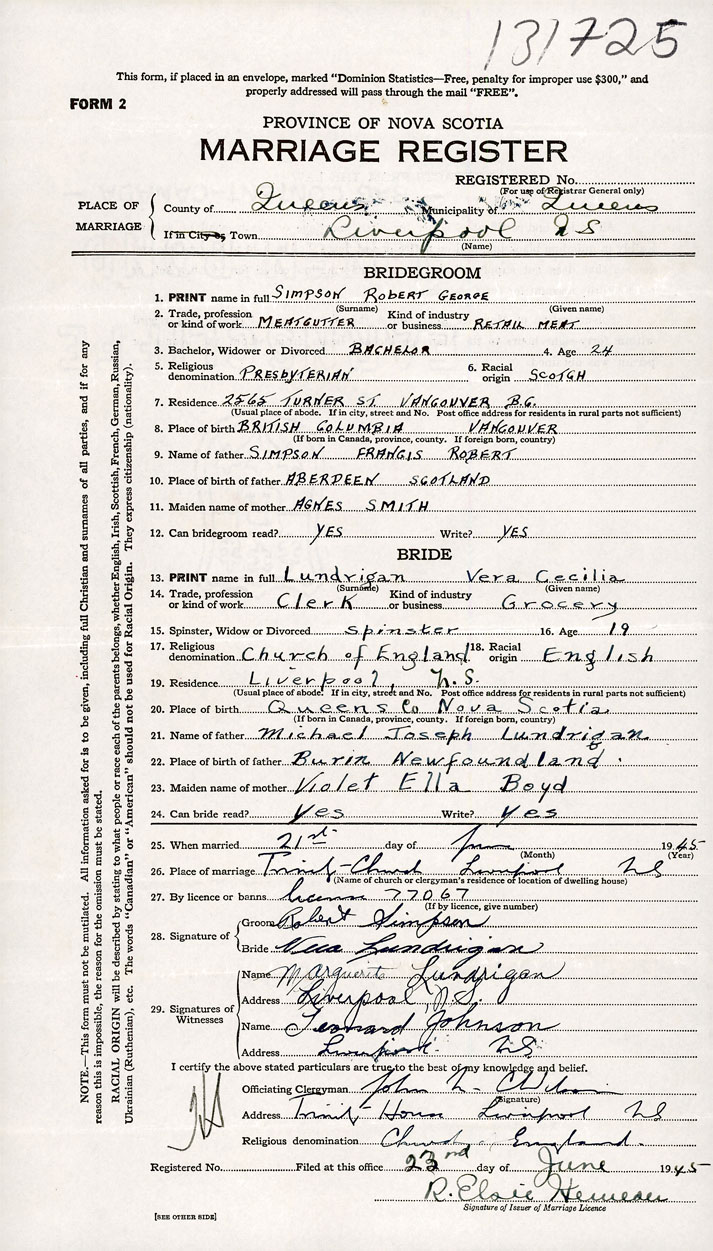 131725
This form, if placed in an envelope, marked "Dominion Statistics—Free, penalty for improper use $300," and
properly addressed will pass through the mail "FREE".
FORM 2
PROVINCE OF NOVA SCOTIA
MARRIAGE REGISTER
REGISTERED No.
(For use of Registrar General only)
PLACE OF MARRIAGE
County of Queens Municipality of Queens
If in City or Town Liverpool N S
(Name)
BRIDEGROOM
1. PRINT name in full SIMPSON ROBERT GEORGE
(Surname) (Given name)
2. Trade, profession or kind of work MEATCUTTER Kind of industry or business RETAIL MEAT
3. Bachelor, Widower or Divorced BACHELOR 4. Age 24
5. Religious denomination PRESBYTERIAN 6. Racial origin SCOTCH
7. Residence 2565 TURNER ST. VANCOUVER B.C.
(Usual place of abode. If in city, street and No. Post office address for residents in rural parts not sufficient)
8. Place of birth BRITISH COLUMBIA VANCOUVER
(If born in Canada, province, county. If foreign born, country)
9. Name of father SIMPSON FRANCIS ROBERT
10. Place of birth of father ABERDEEN SCOTLAND
11. Maiden name of mother AGNES SMITH
12. Can bridegroom read? YES Write? YES
BRIDE
13. PRINT name in full Lundrigan Vera Cecilia
(Surname) (Given name)
14. Trade, profession or kind of work Clerk Kind of industry or business Grocery
15. Spinster, Widow or Divorced spinster 16. Age 19
17. Religious denomination Church of England 18. Racial origin English
19. Residence Liverpool, N.S.
(Usual place of abode. If in city, street and No. Post office address for residents in rural parts not sufficient)
20. Place of birth Queens Co Nova Scotia
(If born in Canada, province, county. If foreign born, country)
21. Name of father Michael Joseph Lundrigan
22. Place of birth of father Burin Newfoundland.
23. Maiden name of mother Violet Ella Boyd
24. Can bride read? Yes Write? Yes
25. When married 21st day of June 1945
(Month) (Year)
26. Place of marriage Trinity Church Liverpool NS
(Name of church or clergyman's residence or location of dwelling house)
27. By licence or banns license 77067
(If by licence, give number)
28. Signature of
Groom Robert Simpson
Bride Vera Lundrigan
29. Signatures of Witnesses
Name Marguerite Lundrigan
Address Liverpool, N.S.
Name Leonard Johnson
Address Liverpool NS
I certify the above stated particulars are true to the best of my knowledge and belief.
Officiating Clergyman John
(Signature)
Address Trinity House Liverpool NS
Religious denomination Church England.
Registered No. Filed at this office 23rd day of June 1945
R. Elsie
Signature of Issuer of Marriage Licence
[SEE OTHER SIDE]
NOTE.—This form must not be mutilated. All information asked for is to be given, including full Christian and surnames of all parties, and if for any
reason this is impossible, the reason for the omission must be stated.
RACIAL ORIGIN will be described by stating to what people or race each of the parents belongs, whether English, Irish, Scottish, French, German, Russian,
Ukrainian (Ruthenian), etc. The words "Canadian" or "American" should not be used for Racial Origin. They express citizenship (nationality).